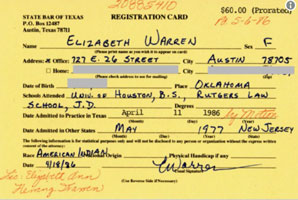 20885410
STATE BAR OF TEXAS REGISTRATION CARD $60.00 (Prorated)
P.O. Box 12487 18 5-6-86
Austin, Texas 78711
Name ELIZABETH WARREN Sex F
(Please print name as you wish it to appear on card)
Address: Office: 727 E. 26 STREET City AUSTIN 78705
Home: City
(Please check address to be used for mailing)
Date of Birth Place OKLAHOMA
Schools Attended UNIV. OF HOUSTON, B.S. RUTGERS LAW
SCHOOL, J.D.
Date Admitted to Practice in Texas April 11 1986 by Motion
Date Admitted in Other States MAY 1977 NEW JERSEY
The following information is for statistical purposes only and will not be disclosed to any person or organization without the express written consent of the attorney.
Race AMERICAN INDIAN National Origin Physical Handicap if any
Date 4/18/86 EWarren
(Use Reverse Side if Necessary)
Elizabeth Ann
Herring Warren